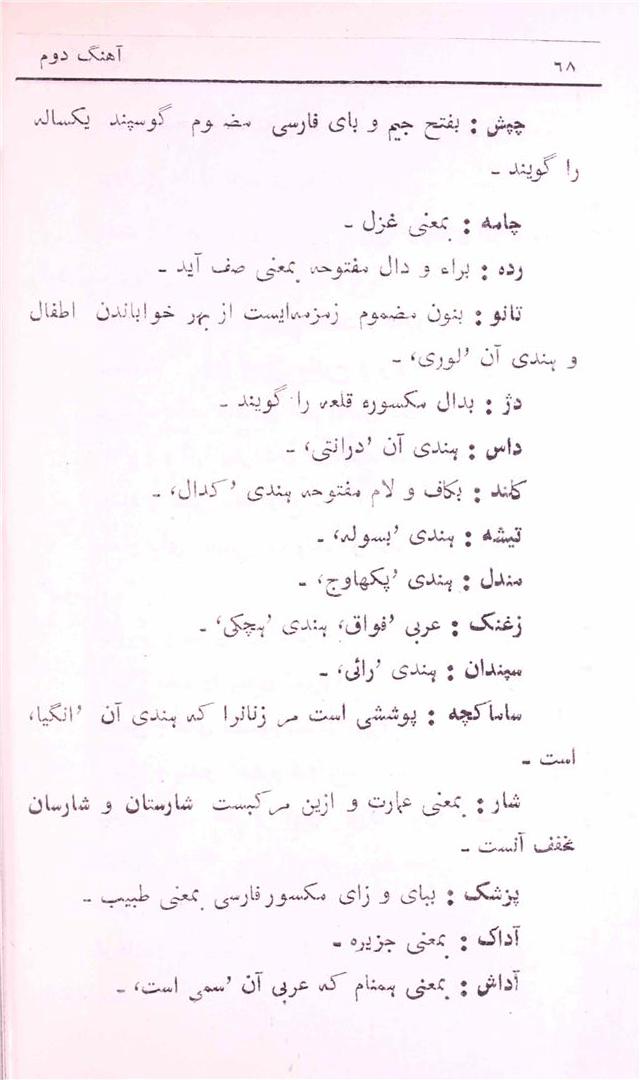 ۶۸ آهنگ دوم
چپش : بفتح جیم و بای فارسی مضموم گوسپند یکساله
را گویند ـ
چامه : بمعنی غزل ـ
رده : براء و دال مفتوحه بمعنی صف آید ـ
نانو : بنون مضموم زمزمه‌ایست از بهر خواباندن اطفال
و هندی آن ’لوری‘ ـ
دژ : بدال مکسوره قلعه را گویند ـ
داس : هندی آن ’درانتی‘ ـ
کلند : بکاف و لام مفتوحه هندی ’کدال‘ ـ
تیشه : هندی ’بسوله‘ ـ
مندل : هندی ’پکهاوج‘ ـ
زغنک : عربی ’فواق‘ هندی ’هچکی‘ ـ
سپندان : هندی ’رائی‘ ـ
ساماکچه : پوششی است مر زنانرا که هندی آن ’انگیا‘
است ـ
شار : بمعنی عمارت و ازین مرکبست شارستان و شارسان
مخفف آنست ـ
پزشک : ببای و زای مکسور فارسی بمعنی طبیب ـ
آداک : بمعنی جزیره ـ
آداش : بمعنی همنام که عربی آن ’سمی است‘ ـ